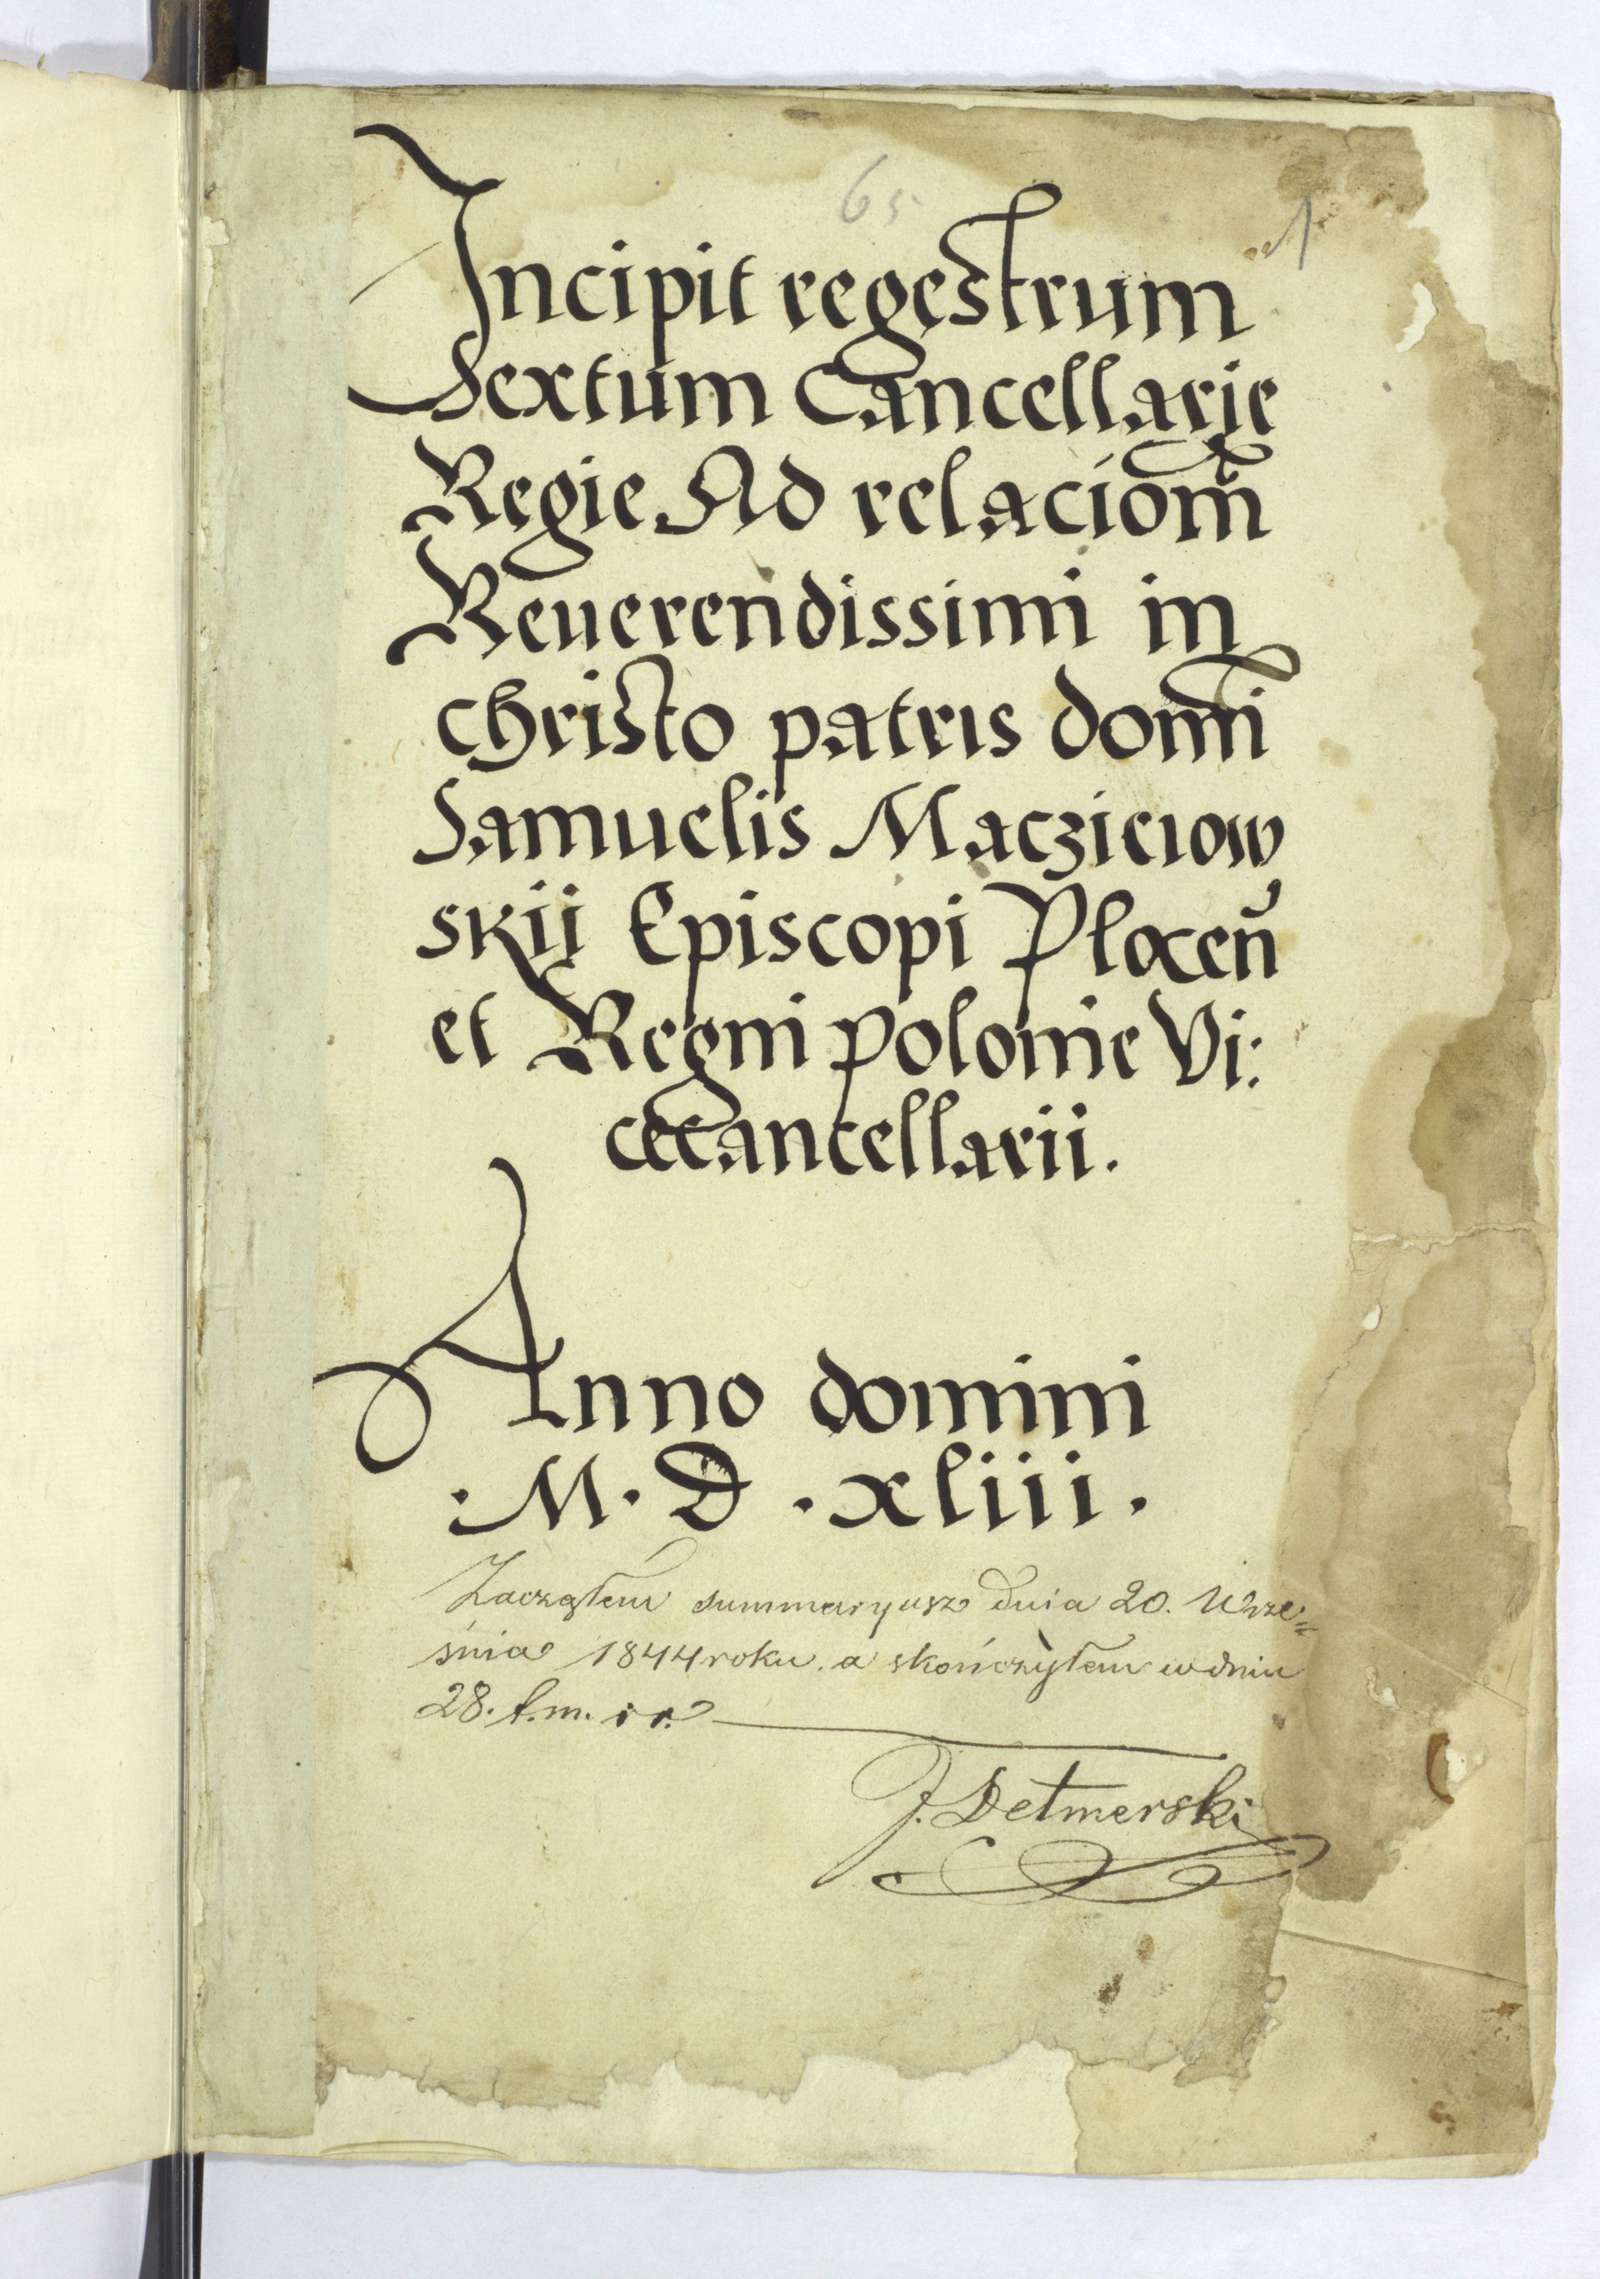 65
1
Incipit regestrum
Sextum Cancellarie
Regie Ad relaciom̃
Reuerendissimi in
christo patris domi
Samuelis Macziciow
skii Episcopi Plocen̄
et Regni polonie Vi:
cecancellarii.
Anno domini
.M.D.xliii.
Zacząłem summaryusz dnia 20. Wrze=
śnia 1844 roku. a skończyłem w dniu
28. t.m. i r.
J. Detmerski